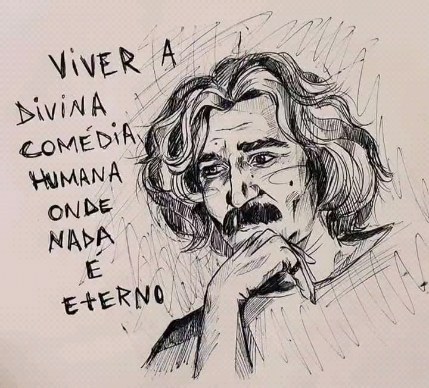 VIVER A
DIVINA
COMÉDIA
HUMANA
ONDE
NADA
É
ETERNO